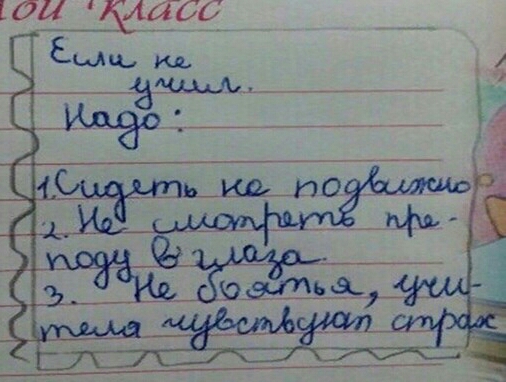 ой класс
Если не
учил.
Надо:
1. Сидеть не подвижно
2. Не смотреть пре-
поду в глаза.
3. Не боятья, учи-
теля чувствуют страх